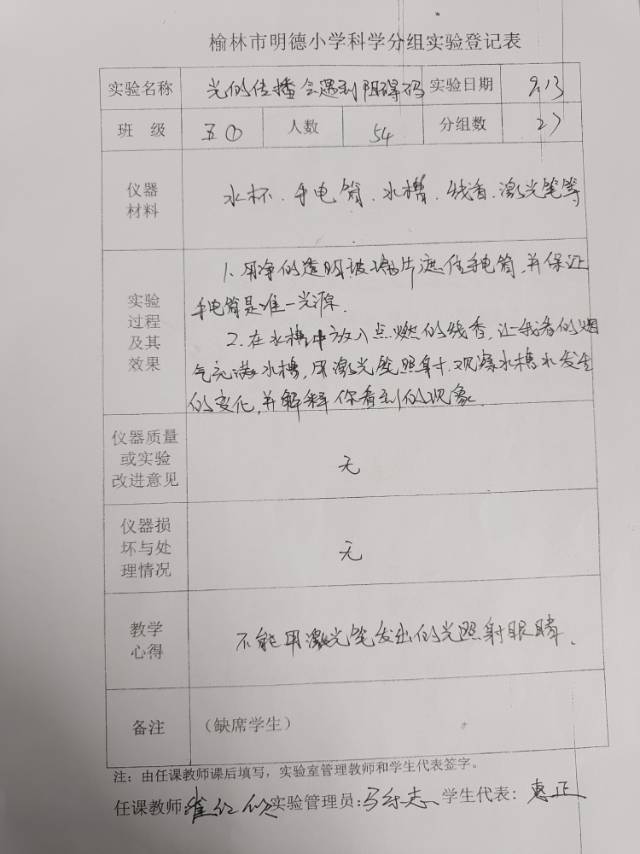 榆林市明德小学科学分组实验登记表
实验名称 光的传播会遇到阻碍吗 实验日期 9.13
班 级 五① 人数 54 分组数 27
仪器
材料
水杯、手电筒、水槽、线香、激光笔等
实验
过程
及其
效果
1. 用净的透明玻璃片遮住手电筒,并保证
手电筒是唯一光源.
2. 在水槽中放入点燃的线香,让线香的烟
气充满水槽,用激光笔照射.观察水槽水发生
的变化,并解释你看到的现象.
仪器质量
或实验
改进意见
无
仪器损
坏与处
理情况
无
教学
心得
不能用激光笔发出的光照射眼睛.
备注 (缺席学生)
注:由任课教师课后填写,实验室管理教师和学生代表签字。
任课教师 实验管理员: 学生代表: